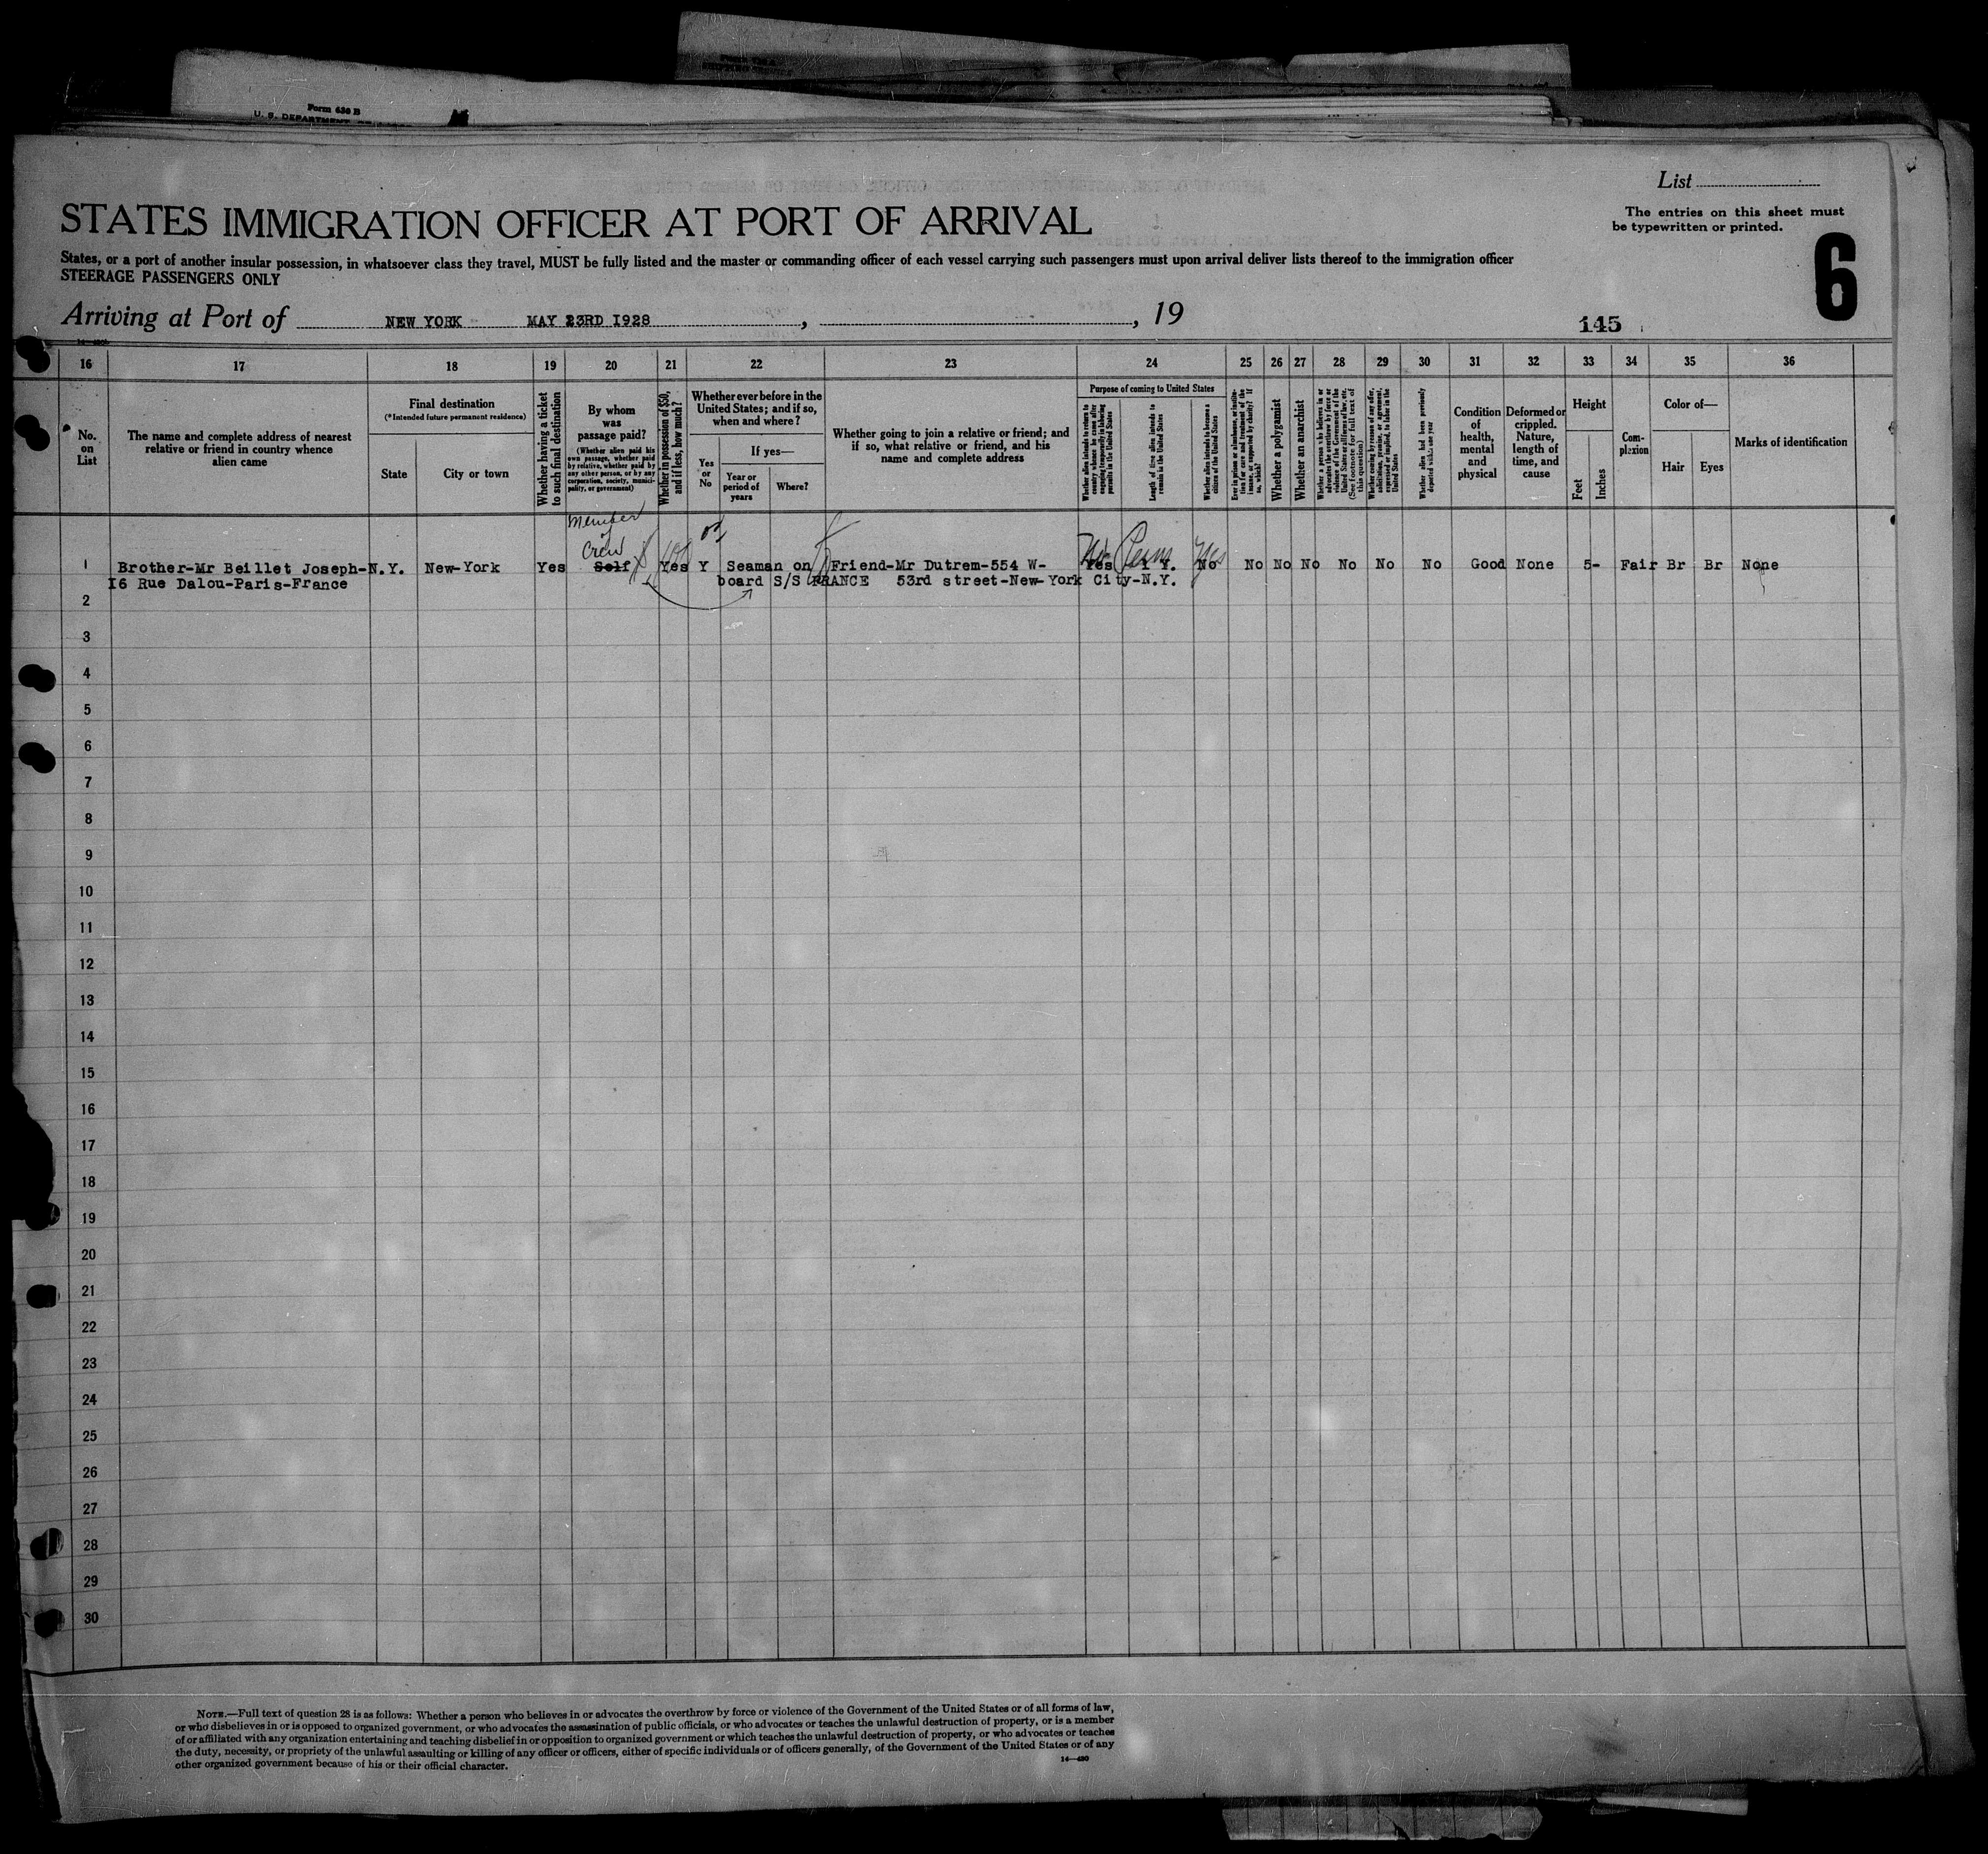 Form 630 B
U. S. DEPARTMENT
List
STATES IMMIGRATION OFFICER AT PORT OF ARRIVAL
The entries on this sheet must
be typewritten or printed.
6
States, or a port of another insular possession, in whatsoever class they travel, MUST be fully listed and the master or commanding officer of each vessel carrying such passengers must upon arrival deliver lists thereof to the immigration officer
STEERAGE PASSENGERS ONLY
Arriving at Port of NEW YORK MAY 23RD I928 , , 19
145
16 17 18 19 20 21 22 23 24 25 26 27 28 29 30 31 32 33 34 35 36
No. on List
The name and complete address of nearest
relative or friend in country whence
alien came
Final destination
(*Intended future permanent residence)
State
City or town
Whether having a ticket
to such final destination
By whom
was
passage paid?
(Whether alien paid his
own passage, whether paid
by relative, whether paid by
any other person, or by any
corporation, society, munici-
pality, or government)
Whether in possession of $50,
and if less, how much?
Whether ever before in the
United States; and if so,
when and where?
Yes
or
No
If yes—
Year or
period of
years
Where?
Whether going to join a relative or friend; and
if so, what relative or friend, and his
name and complete address
Purpose of coming to United States
Whether alien intends to return to
country whence he came after
engaging temporarily in laboring
pursuits in the United States
Length of time alien intends to
remain in the United States
Whether alien intends to become a
citizen of the United States
Ever in prison or almshouse, or institu-
tion for care and treatment of the
insane, or supported by charity? If
so, which?
Whether a polygamist
Whether an anarchist
Whether a person who believes in or
advocates the overthrow by force or
violence of the Government of the
United States or all forms of law, etc.
(See footnote for full text of
this question)
Whether coming by reason of any offer,
solicitation, promise, or agreement,
expressed or implied, to labor in the
United States
Whether alien had been previously
deported within one year
Condition
of
health,
mental
and
physical
Deformed or
crippled.
Nature,
length of
time, and
cause
Height
Feet
Inches
Com-
plexion
Color of—
Hair
Eyes
Marks of identification
Member
of
Crew
No Perm Yes
1 Brother-Mr Beillet Joseph-N.Y. New-York Yes Self Yes Y Seaman on Friend-Mr Dutrem-554 W- Yes No No No No No No No Good None 5- Fair Br Br None
I6 Rue Dalou-Paris-France board S/S FRANCE 53rd street-New-York City-N.Y.
2
3
4
5
6
7
8
9
10
11
12
13
14
15
16
17
18
19
20
21
22
23
24
25
26
27
28
29
30
NOTE.—Full text of question 28 is as follows: Whether a person who believes in or advocates the overthrow by force or violence of the Government of the United States or of all forms of law,
or who disbelieves in or is opposed to organized government, or who advocates the assassination of public officials, or who advocates or teaches the unlawful destruction of property, or is a member
of or affiliated with any organization entertaining and teaching disbelief in or opposition to organized government or which teaches the unlawful destruction of property, or who advocates or teaches
the duty, necessity, or propriety of the unlawful assaulting or killing of any officer or officers, either of specific individuals or of officers generally, of the Government of the United States or of any
other organized government because of his or their official character.
14—430